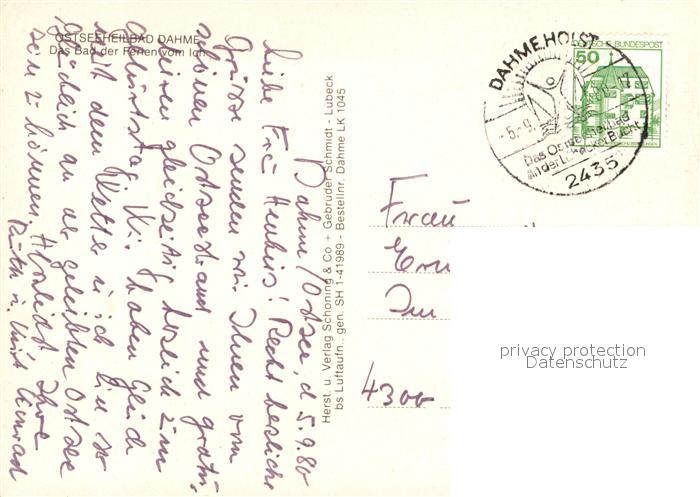 OSTSEEHEILBAD DAHME
Das Bad der Ferien vom Ich
Dahme/Ostsee, d. 5.9.80
Liebe Frau! Recht herzliche
Grüsse senden wir Ihnen vom
schönen Ostseestrand und gratu-
lieren gleichzeitig herzlich zum
Geburtstag. Wir haben Glück
mit dem Wetter u. ich bin so
glücklich an der geliebten Ostsee
sein zu können. Herzlichst Ihre
Ruth u. Kurt Konrad
Herst. u. Verlag Schöning & Co + Gebrüder Schmidt - Lübeck
bs Luftaufn., gen. SH 1-41989 - Bestellnr. Dahme LK 1045
DAHME, HOLST
-5.-9.
17
Das Ostseeheilbad
an der Lübecker Bucht
2435
DEUTSCHE BUNDESPOST
50
Frau
4300
privacy protection
Datenschutz